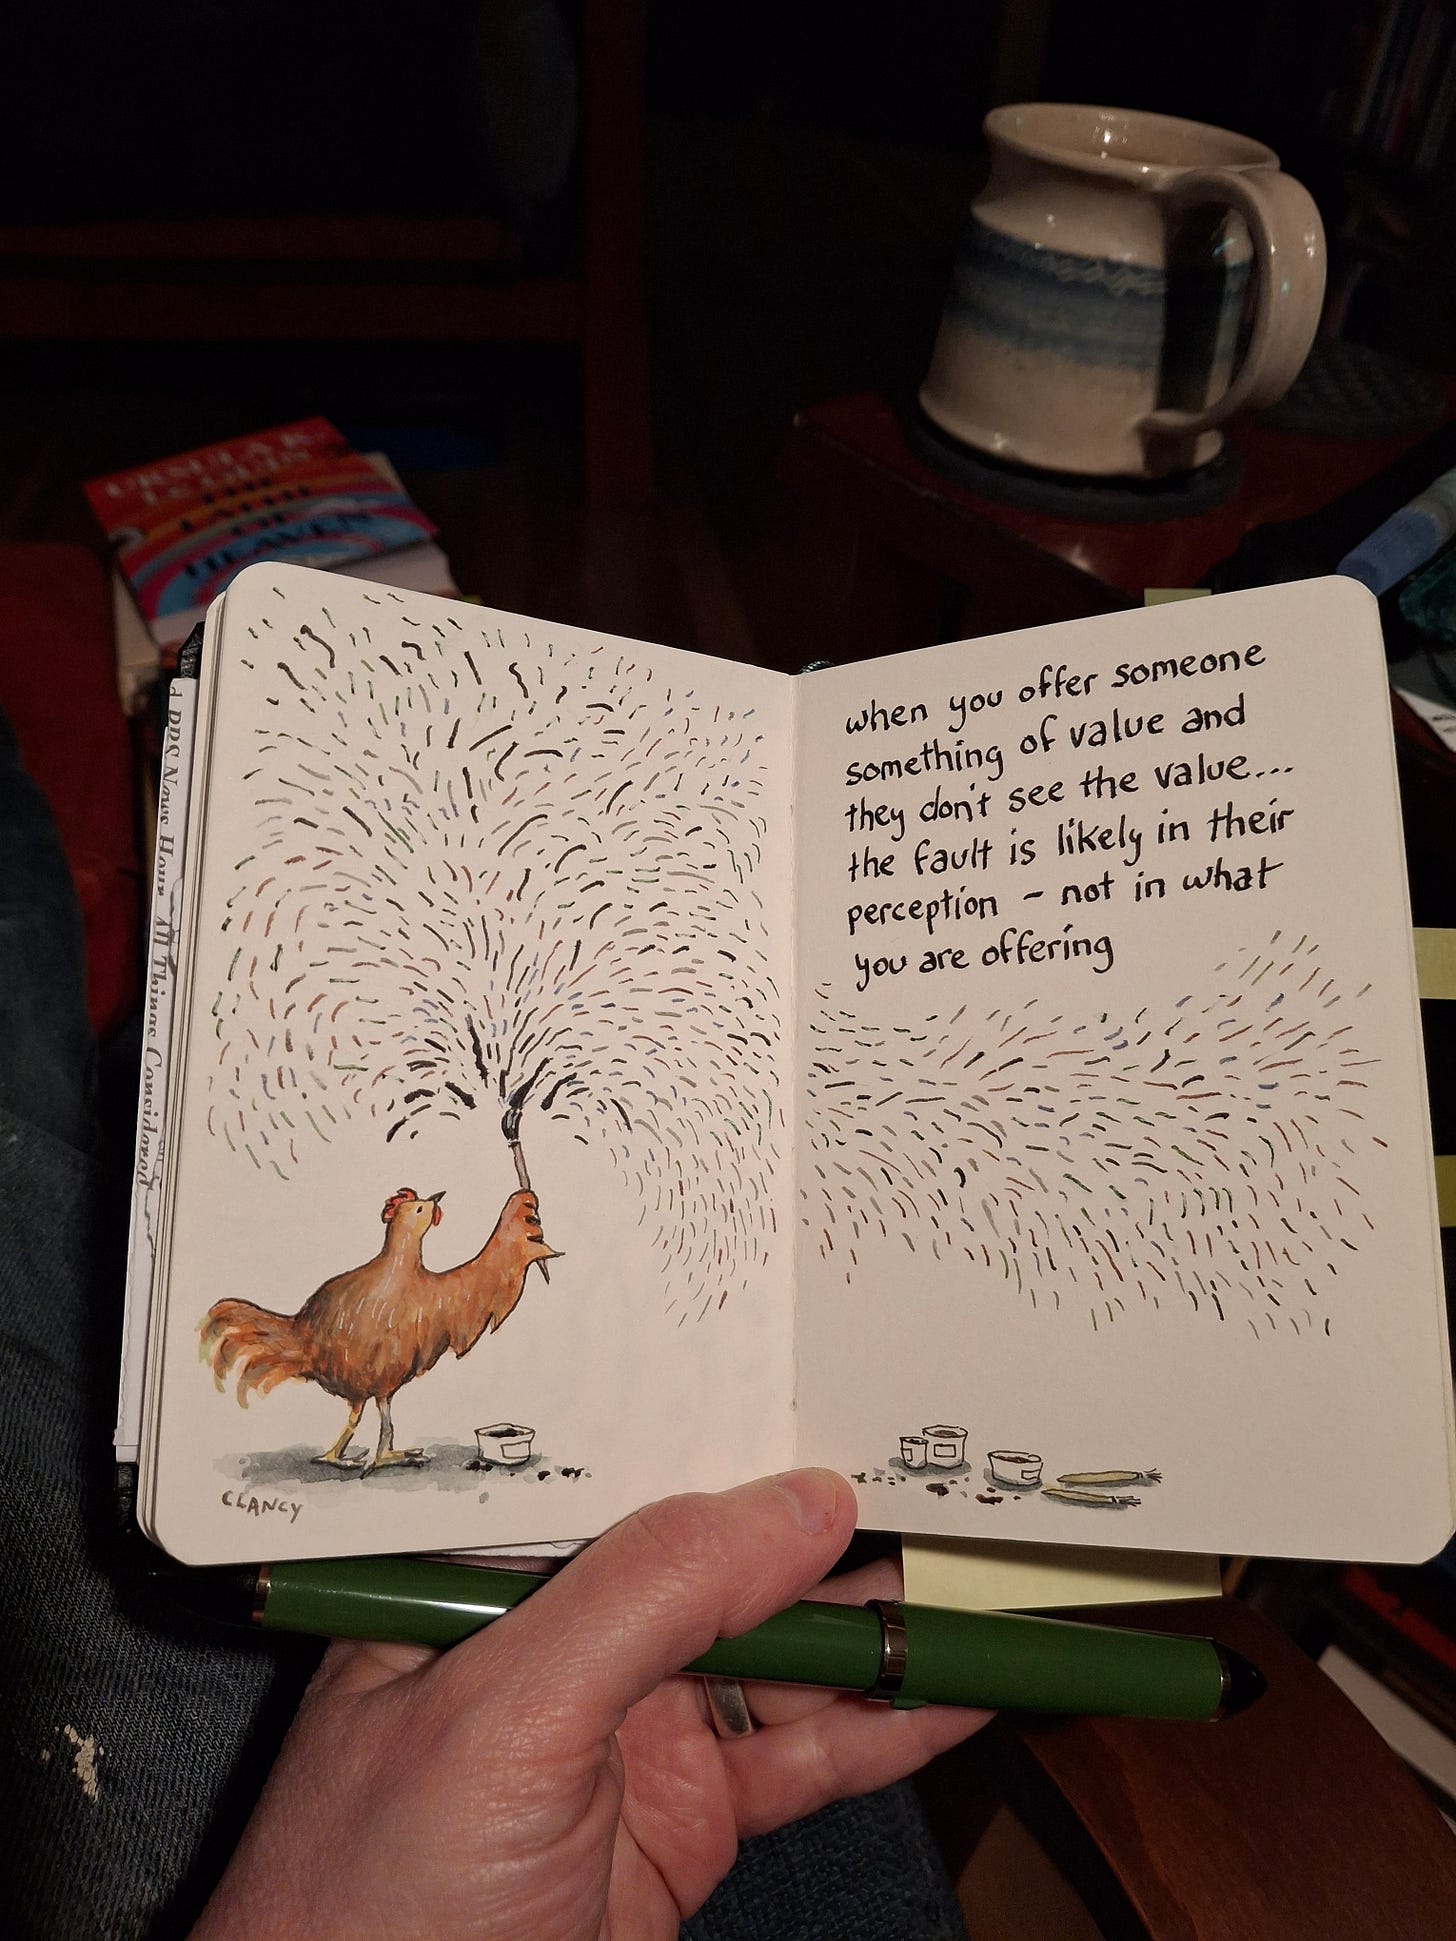 URSULA K.
LE GUIN
THE
LATHE
OF
HEAVEN
when you offer someone
something of value and
they don't see the value...
the fault is likely in their
perception - not in what
you are offering
CLANCY
PBS News Hour, All Things Considered